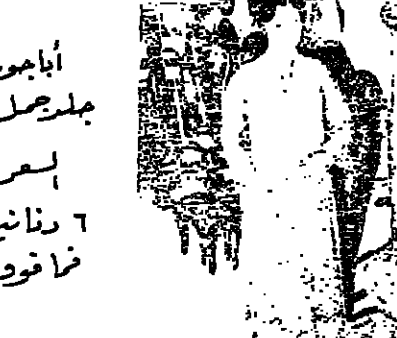 أباجور
جلد جمل
السعر
٦ دنانير
فما فوق